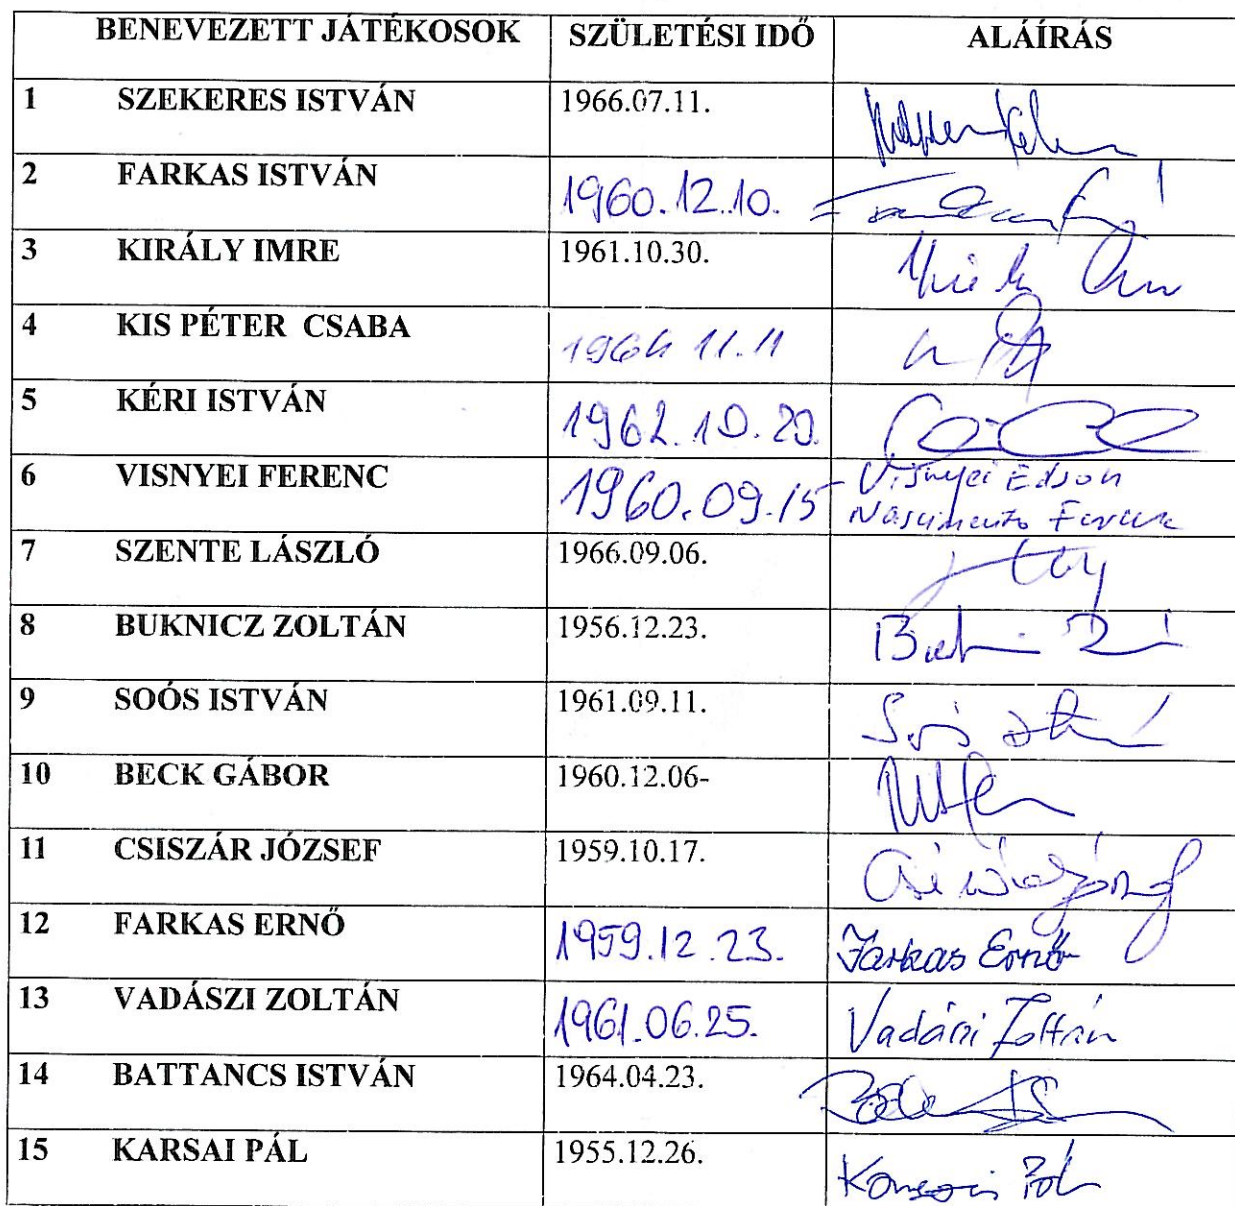 BENEVEZETT JÁTÉKOSOK SZÜLETÉSI IDŐ ALÁÍRÁS
1 SZEKERES ISTVÁN 1966.07.11.
2 FARKAS ISTVÁN 1960.12.10.
3 KIRÁLY IMRE 1961.10.30.
4 KIS PÉTER CSABA 1964 11.11
5 KÉRI ISTVÁN 1962.10.20.
6 VISNYEI FERENC 1960.09.15 Visnyei Edson
Nascimento Ferenc
7 SZENTE LÁSZLÓ 1966.09.06.
8 BUKNICZ ZOLTÁN 1956.12.23.
9 SOÓS ISTVÁN 1961.09.11.
10 BECK GÁBOR 1960.12.06-
11 CSISZÁR JÓZSEF 1959.10.17.
12 FARKAS ERNŐ 1959.12.23. Farkas Ernő
13 VADÁSZI ZOLTÁN 1961.06.25. Vadászi Zoltán
14 BATTANCS ISTVÁN 1964.04.23.
15 KARSAI PÁL 1955.12.26. Karsai Pál